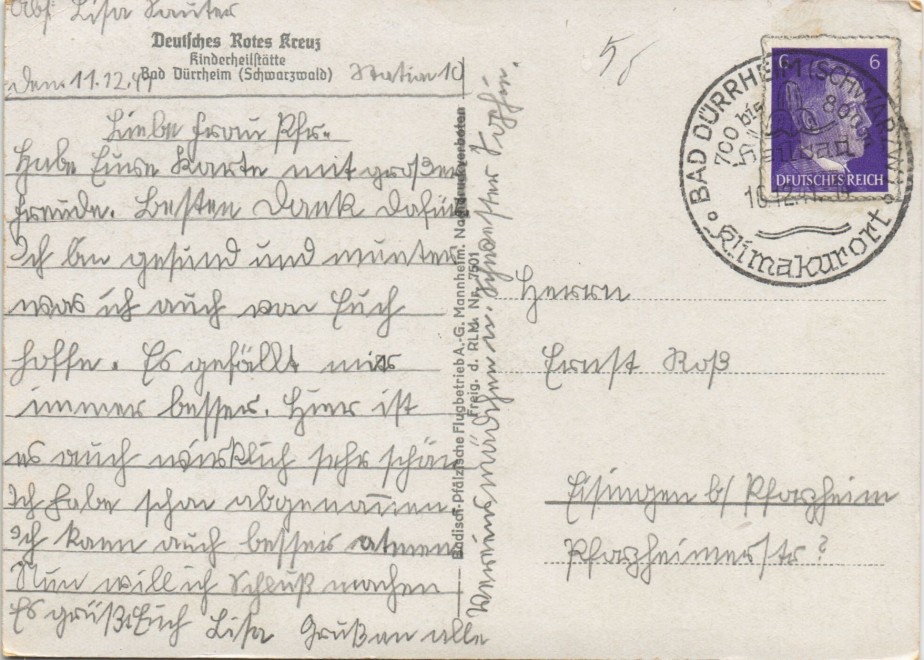 Abs. Lisa Sauter
Deutsches Rotes Kreuz
Kinderheilstätte
Bad Dürrheim (Schwarzwald) Station 10
den 11.12.41
Liebe Frau
Habe Eure Karte mit großer
Freude. Besten Dank dafür
Ich bin gesund und munter
was ich auch von Euch
hoffe. Es gefällt mir
immer besser. Hier ist
es auch wirklich sehr schön
Ich habe schon abgenommen
Ich kann auch besser atmen
Nun will ich Schluß machen
Es grüßt Euch Lisa Gruß an alle
Vereinsmädchen u. Schwester
Badisch-Pfälzische Flugbetrieb A.-G. Mannheim. Nachdruck verboten
Freig. d. RLM. Nr. 7501
5
6 6
DEUTSCHES REICH
BAD DÜRRHEIM (SCHWARZW)
700 bis 800 m
Heilbad
Klimakurort
Herrn
Ernst Roß
Eisingen b/ Pforzheim
Pforzheimerstr ?